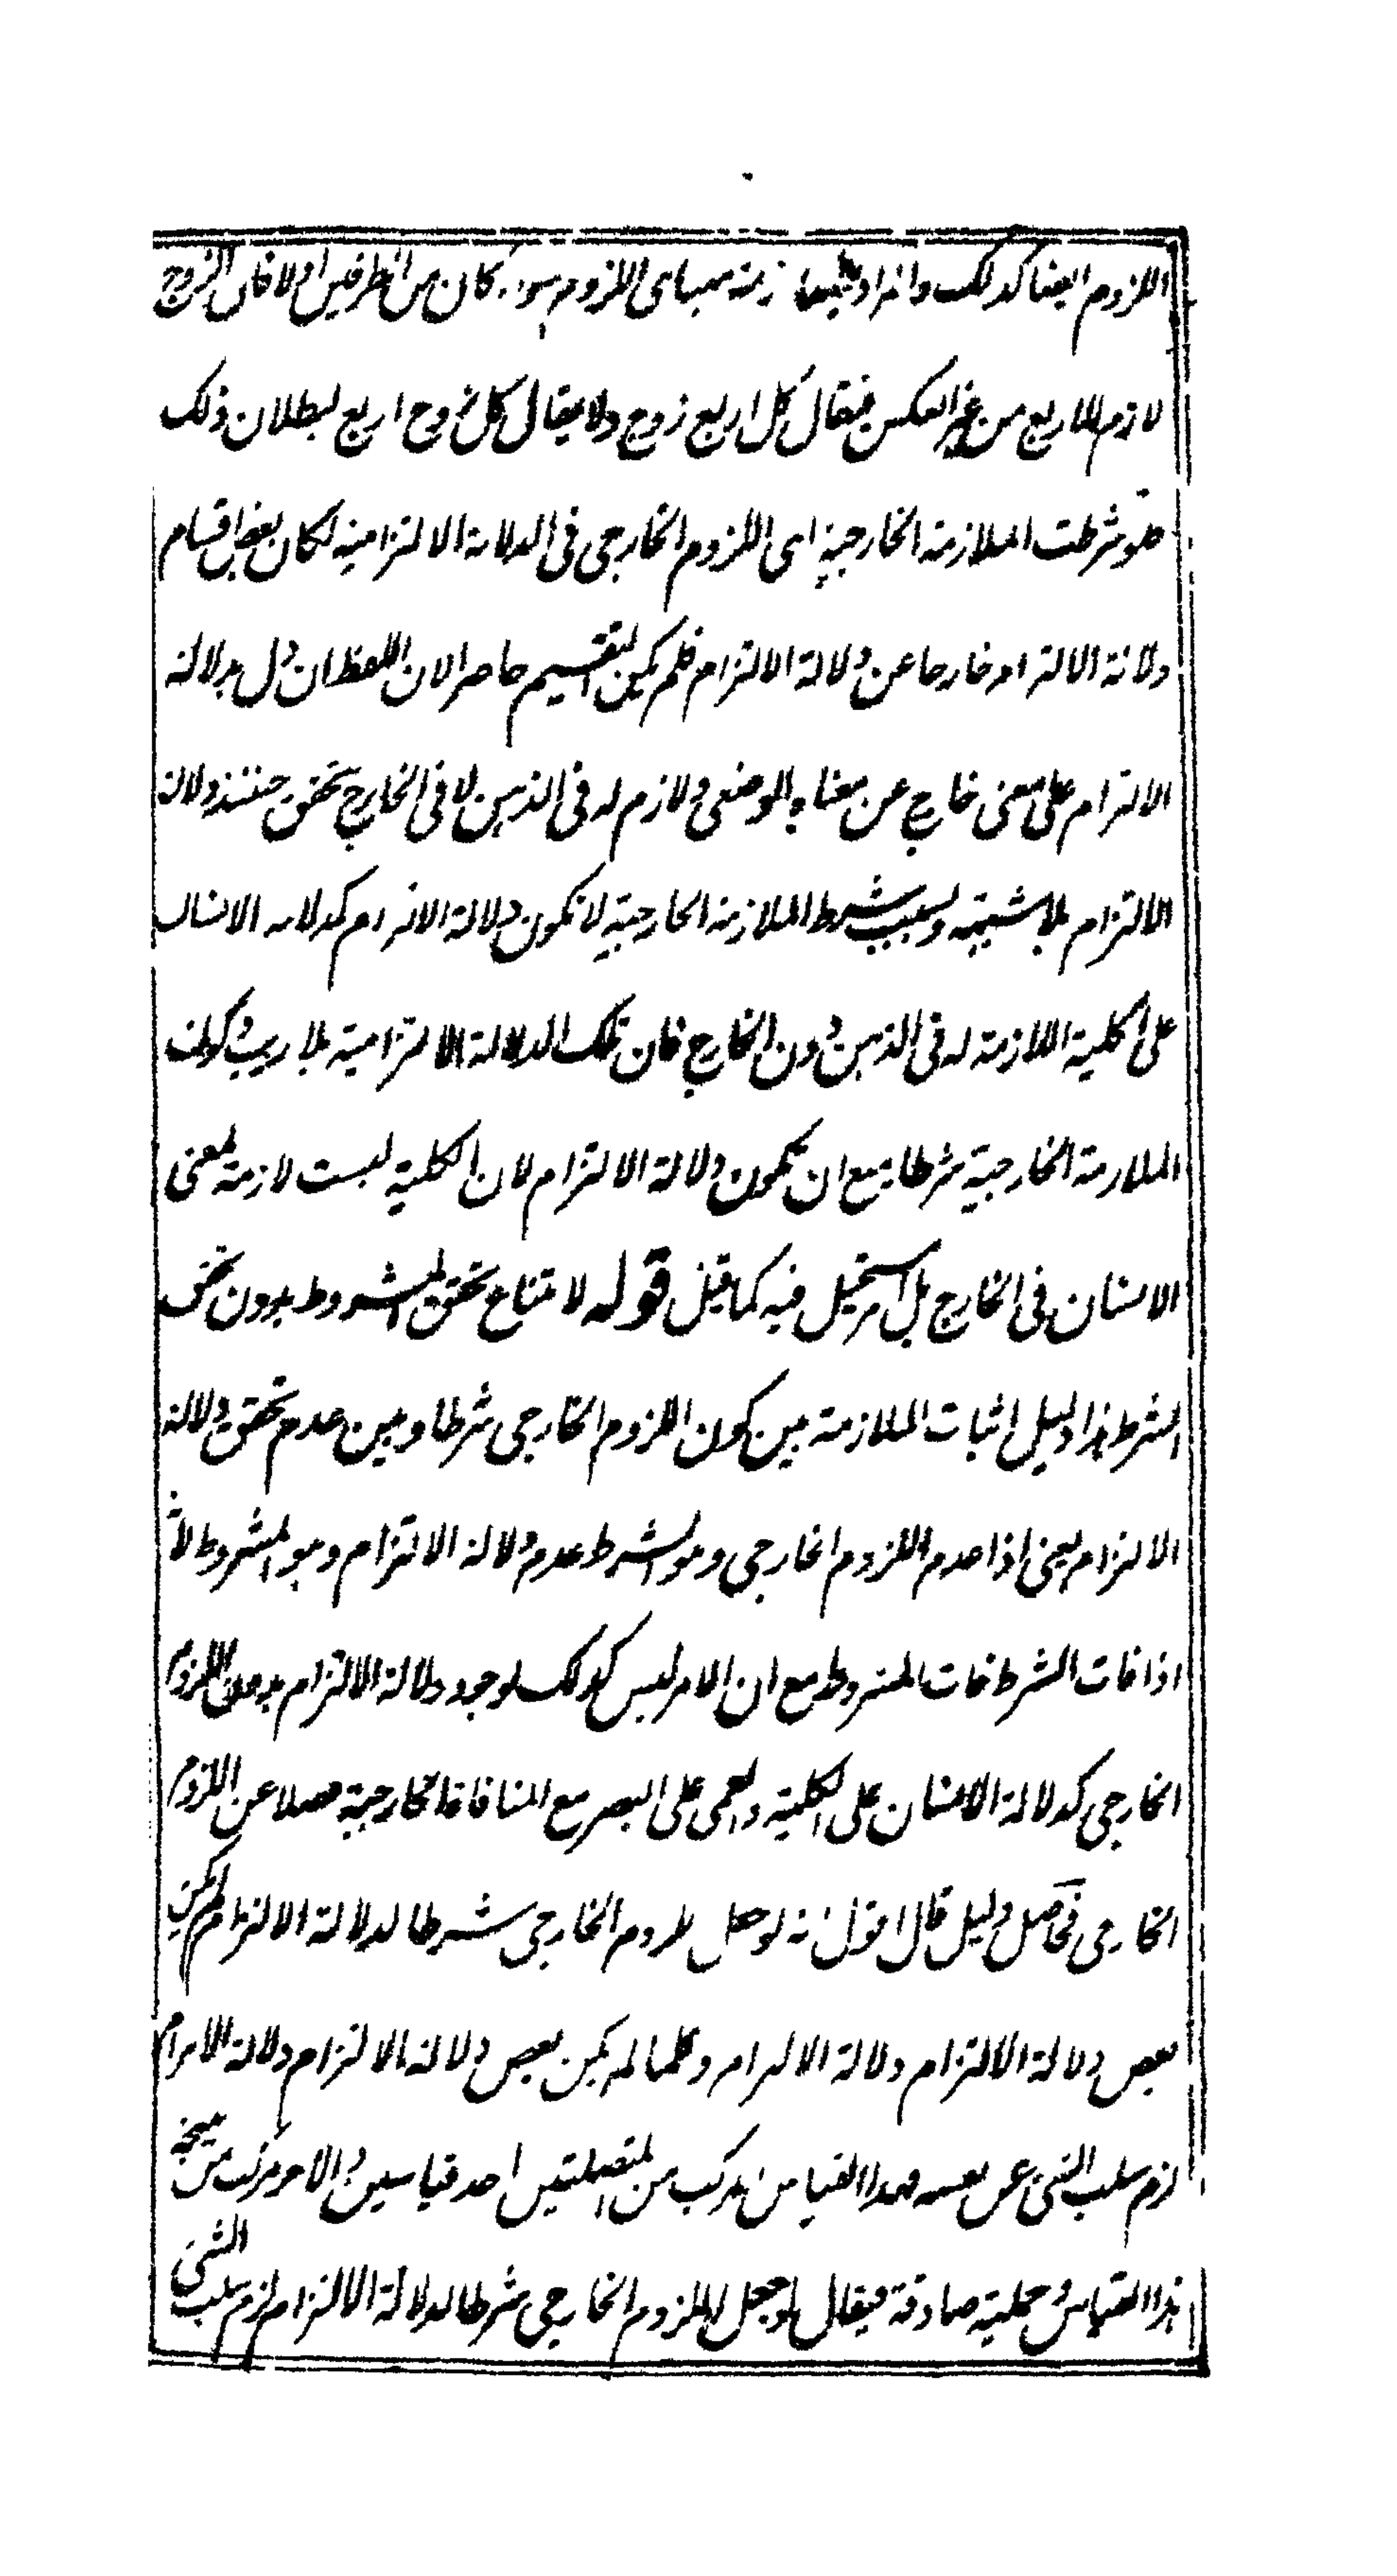 اللزوم ايضا كذلك والمراد بالملازمة ههنا اى اللزوم سواء كان من الطرفين او لا فان الزوج
لازم للاربع من غير العكس فيقال كل اربع زوج ولا يقال كل زوج اربع لبطلان ذلك
فلو شرطت الملازمة الخارجية اى اللزوم الخارجى فى الدلالة الالتزامية لكان بعض اقسام
دلالة الالتزام خارجا عن دلالة الالتزام فلم يكن التقسيم حاصرا لان اللفظ ان دل بدلالة
الالتزام على معنى خارج عن معناه الوضعى ولازم له فى الذهن لا فى الخارج تحقق حينئذ دلالة
الالتزام بلا شبهة وبسبب شرط الملازمة الخارجية لا تكون دلالة الالتزام كدلالة الانسان
على الكلية اللازمة له فى الذهن دون الخارج فان تلك الدلالة الالتزامية بلا ريب وكون
الملازمة الخارجية شرطا يمنع ان يكون دلالة الالتزام لان الكلية ليست لازمة لمعنى
الانسان فى الخارج بل امر مستحيل فيه كما قيل قوله لامتناع تحقق المشروط بدون تحقق
الشرط هذا دليل اثبات الملازمة بين كون اللزوم الخارجى شرطا وبين عدم تحقق دلالة
الالتزام يعنى اذا عدم اللزوم الخارجى وهو الشرط عدم دلالة الالتزام وهو المشروط لانه
اذا فات الشرط فات المشروط مع ان الامر ليس كذلك لوجود دلالة الالتزام بدون اللزوم
الخارجى كدلالة الانسان على الكلية والعمى على البصر مع المنافاة الخارجية فضلا عن اللزوم
الخارجى فحاصل دليل قال اقول انه لو جعل اللزوم الخارجى شرطا لدلالة الالتزام لم يكن
بعض دلالة الالتزام دلالة الالتزام وكلما لم يكن بعض دلالة الالتزام دلالة الالتزام
لزم سلب الشئ عن نفسه فهذا القياس مركب من المتصلتين احد قياسين والاخر مركب من نتيجة
هذا القياس وحملية صادقة فيقال لو جعل اللزوم الخارجى شرطا لدلالة الالتزام لزم سلب الشئ